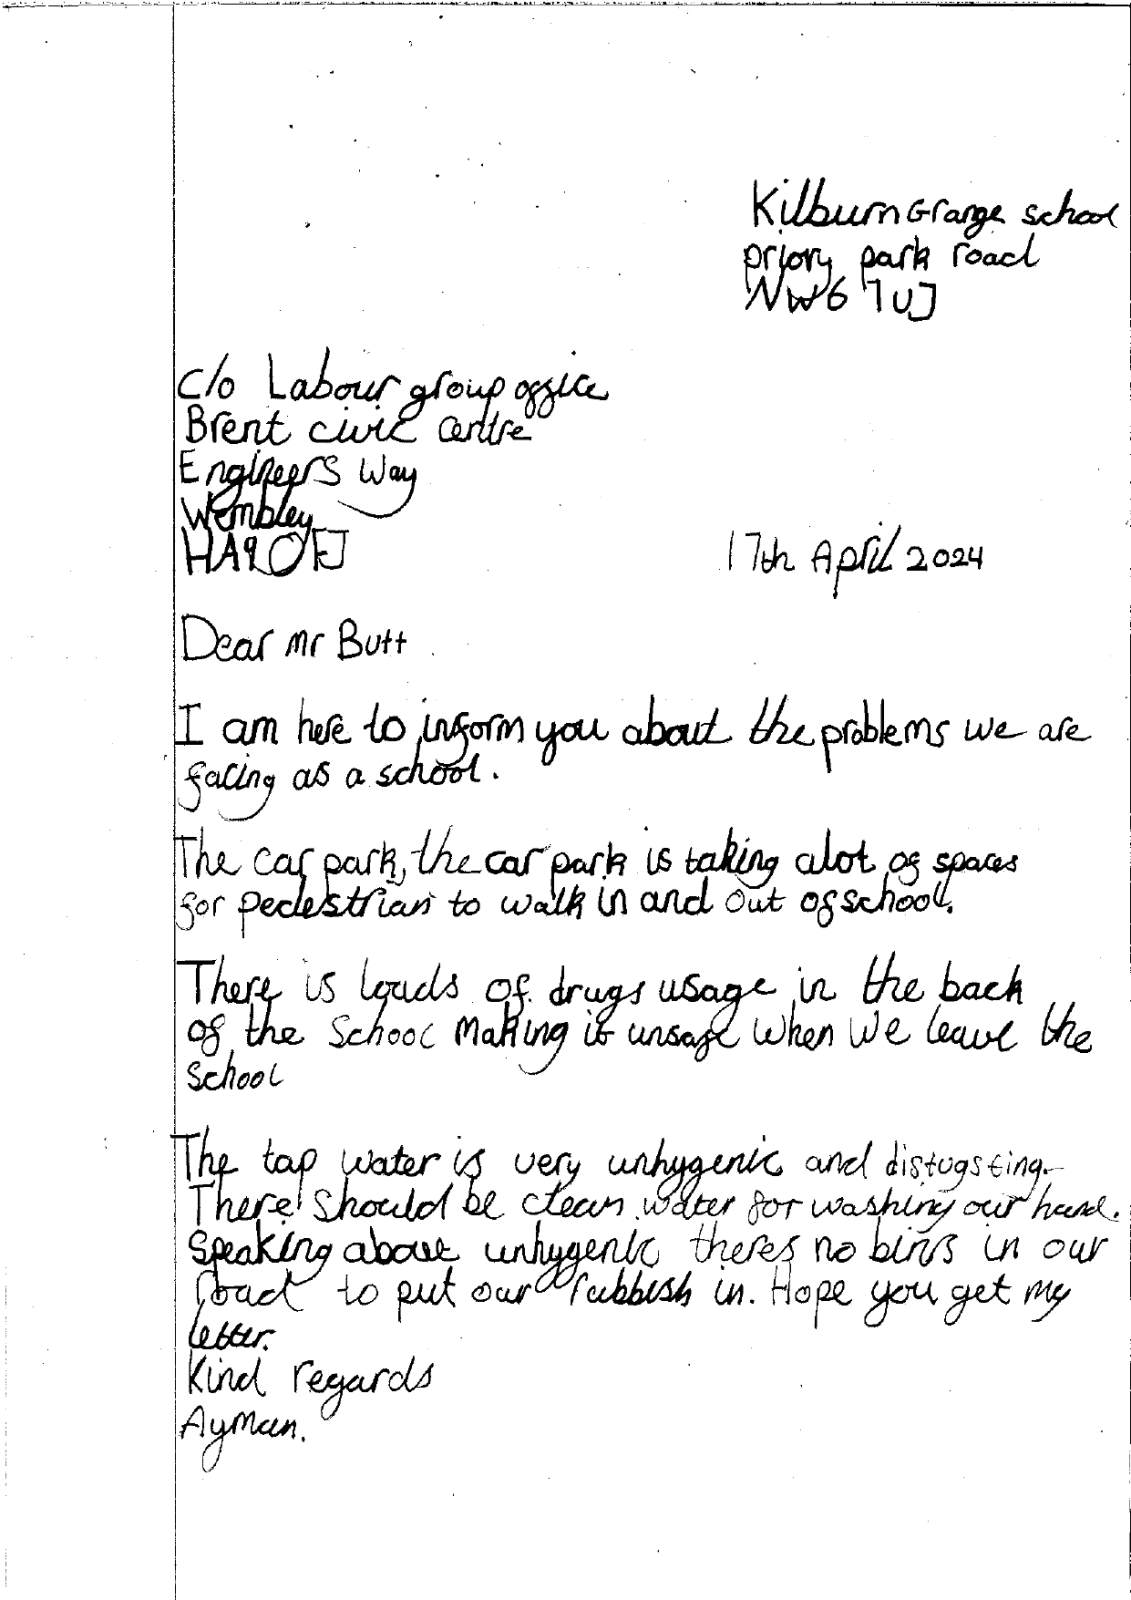 Kilburn Grange school
priory park road
NW6 7UJ
c/o Labour group office
Brent civic centre
Engineers Way
Wembley
HA9 0FJ
17th April 2024
Dear Mr Butt
I am here to inform you about the problems we are
facing as a school.
The car park, the car park is taking alot of spaces
for pedestrian to walk in and out of school.
There is loads of drugs usage in the back
of the school Making it unsafe when we leave the
school
The tap water is very unhygenic and distugsting.
There should be clean water for washing our hand.
Speaking about unhygenic theres no bins in our
road to put our rubbish in. Hope you get my
letter.
Kind regards
Ayman.